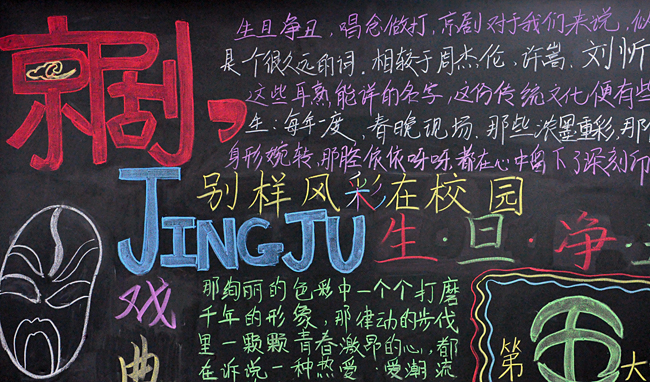 京剧,
生旦争丑,唱念做打,京剧对于我们来说,似
是个很久远的词.相较于周杰伦,许嵩、刘忻
这些耳熟能详的名字,这份传统文化便有些
生:每年度,春晚现场.那些浓墨重彩,那
身形婉转,那腔依依呀呀.都在心中留下了深刻印
别样风彩在校园
JINGJU
生·旦·净·
戏曲
那绚丽的色彩中一个个打磨
千年的形象,那律动的步伐
里一颗颗青春激昂的心,都
在诉说一种热爱·爱潮流
第
大